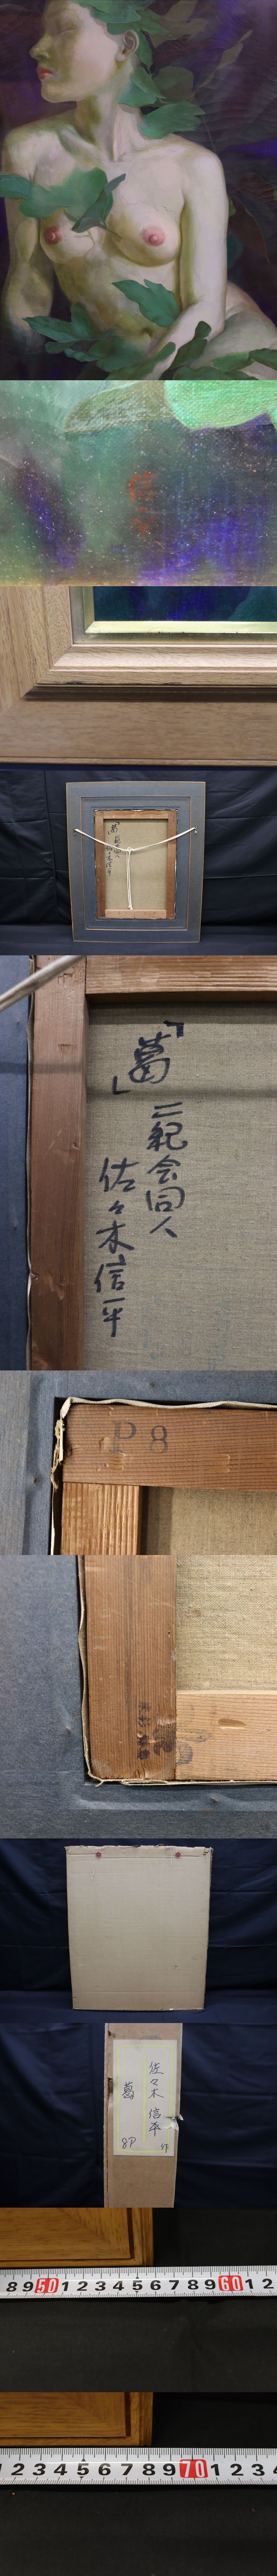 「葛」
二紀会同人
佐々木信平
P8
佐々木信平 作
葛
8P
8 9 50 1 2 3 4 5 6 7 8 9 60 1 2
2 3 4 5 6 7 8 9 70 1 2 3 4